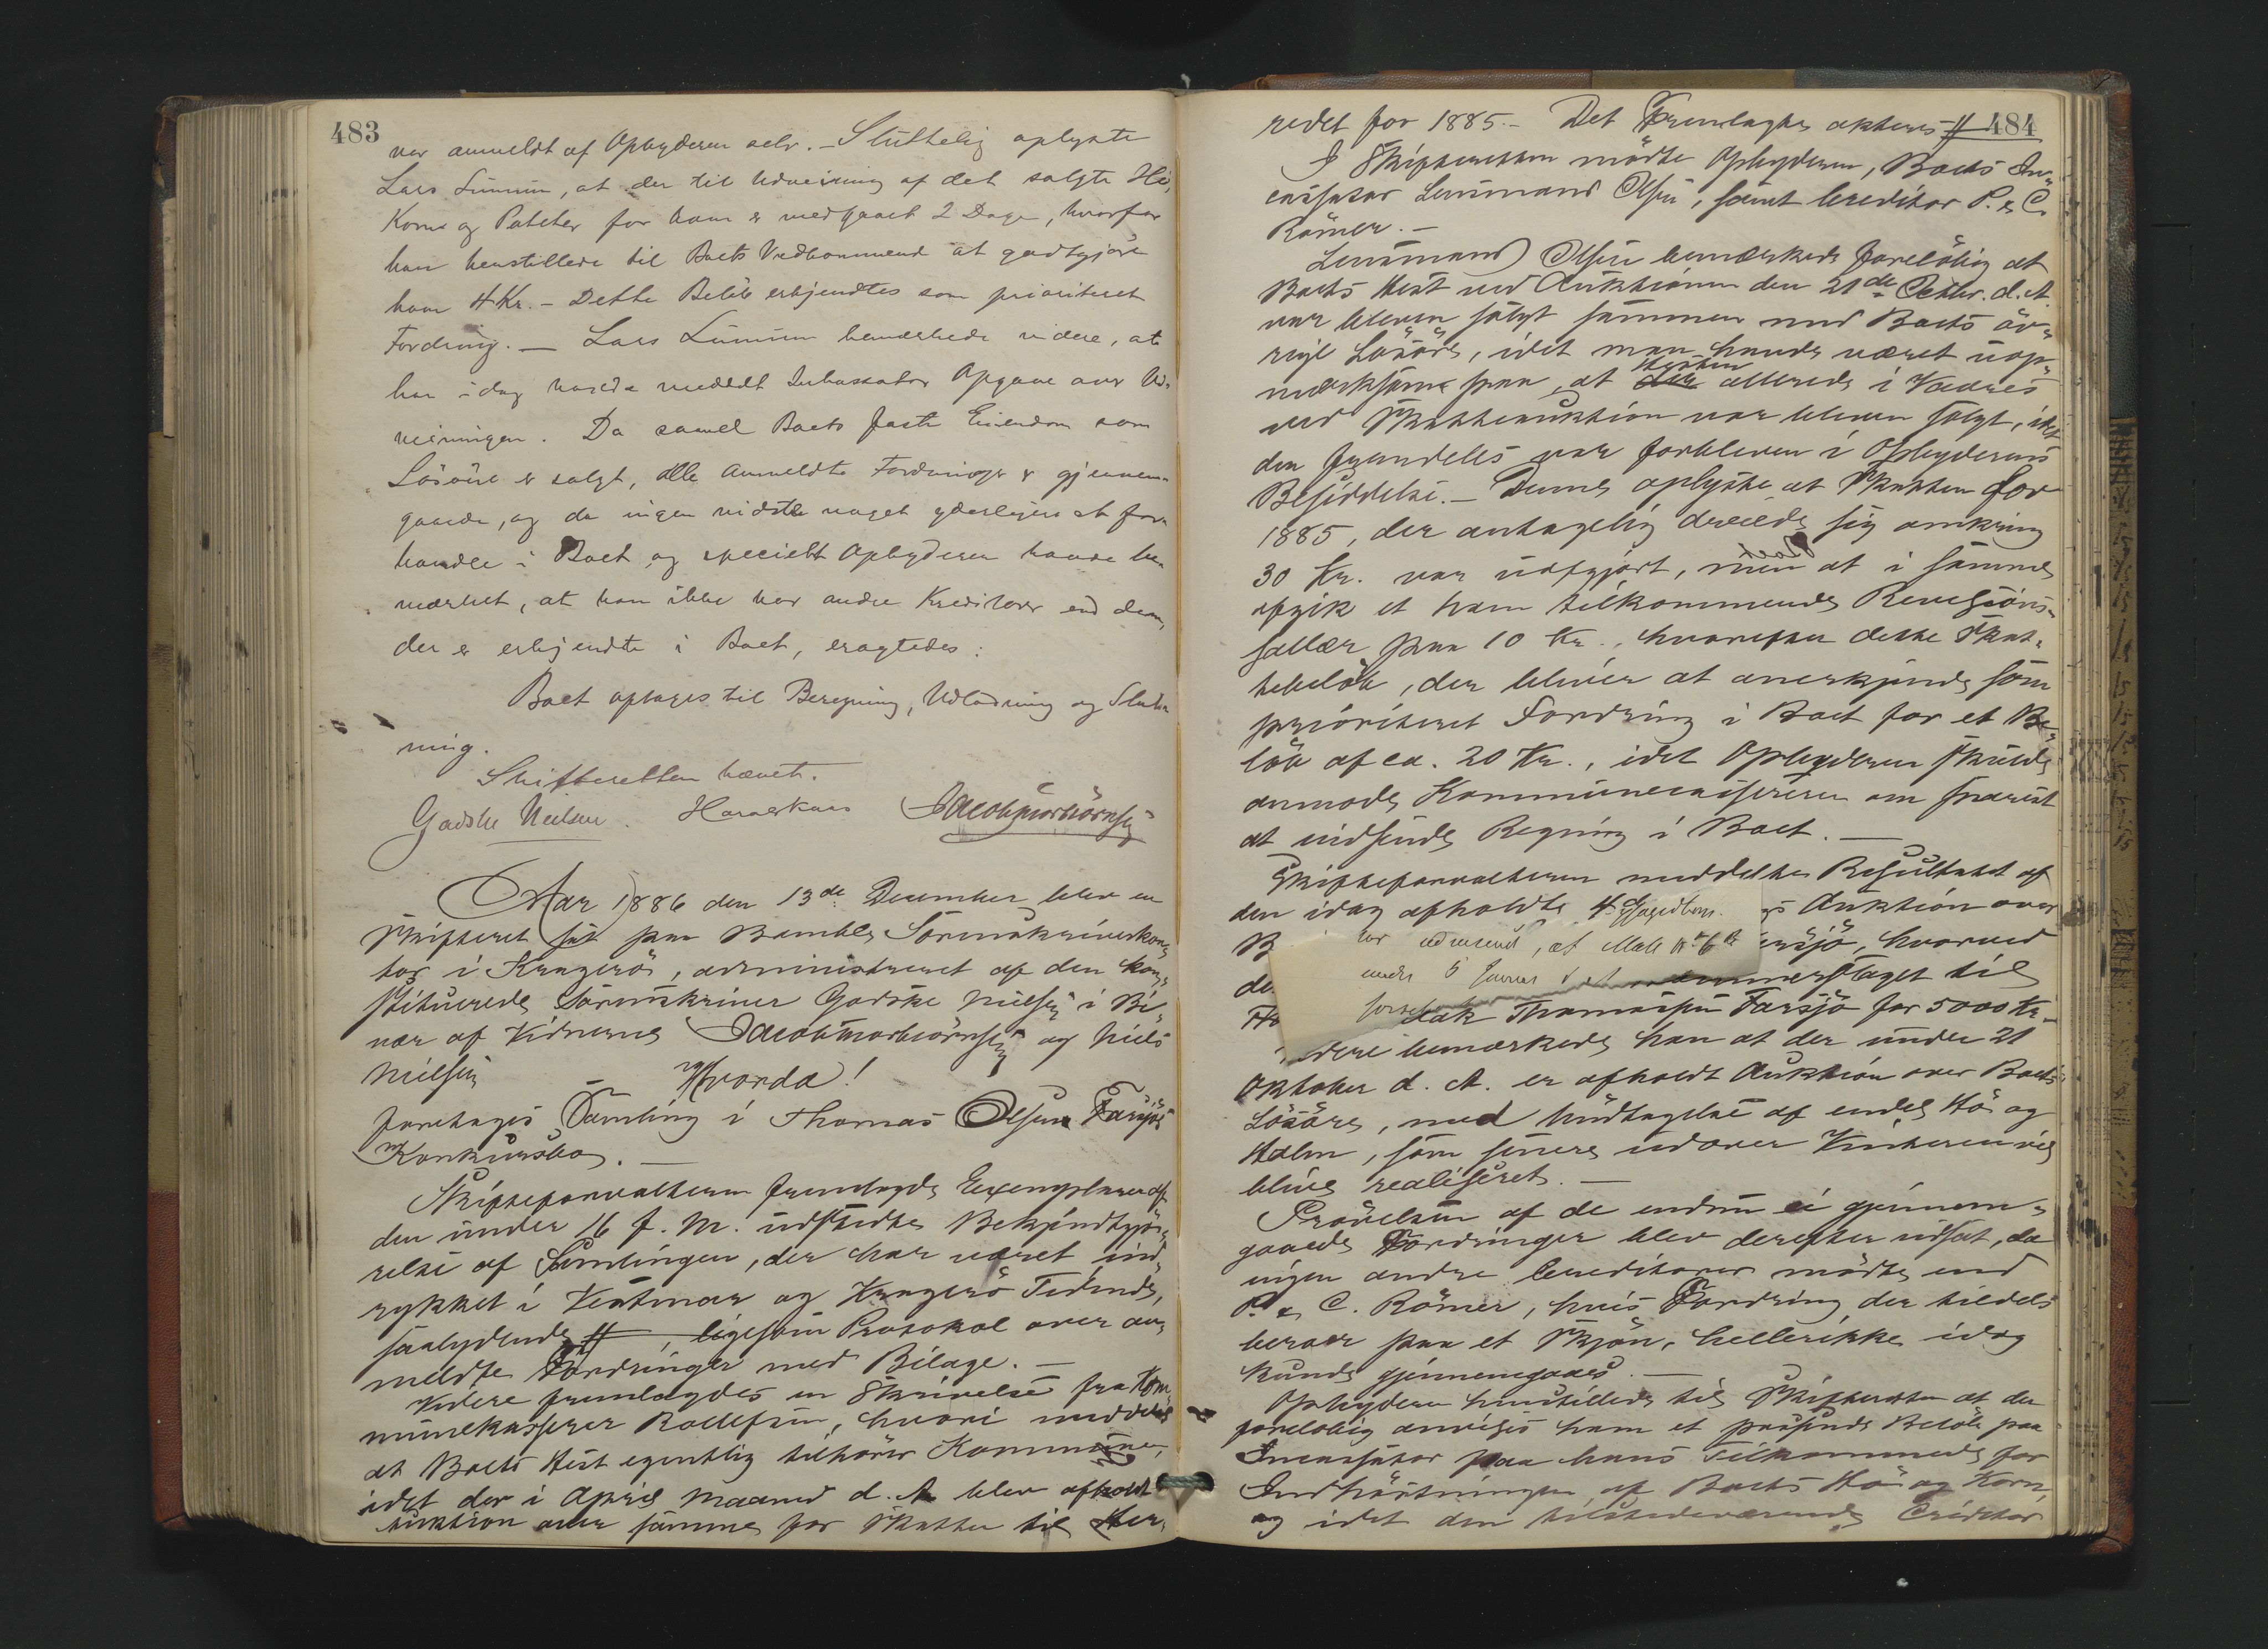 483
var anmeldt af Opbyderen selv. – Sluttelig oplyste
Lars Lunum, at der til Udveining af det solgte Hö,
Korn og Poteter for ham er medgaaet 2 Dage, hvorfor
han henstillede til Boets Vedkommende at godtgjöre
ham 4 Kr. – Dette Belöb erkjendtes som prioriteret
Fordring. – Lars Lunum bemærkede videre, at
han idag havde meddelt Inkassator Opgave over Ud-
veiningen. Da saavel Boets faste Eiendom som
Lösöre er solgt, alle anmeldte Fordringer er gjennem-
gaaede, og da ingen vidste noget yderligere at for-
handle i Boet og specielt Opbyderen havde be-
mærket, at han ikke har andre Kreditorer end dem,
der er erkjendte i Boet, eragtedes:
Boet optages til Beregning, Udlodning og Slut-
ning.
Skifteretten hævet.
Godske Nielsen. Jacob Thorbiörnsen
Aar 1886 den 13de December blev en
Skifteret sat paa Bamble Sorenskriverkon-
tor i Kragerö, administreret af den kon-
stituerede Sorenskriver Godske Nielsen i Bi-
vær af Vidnerne Jacob Thorbiörnsen og Niels
Nielsen
Hvorda!
foretages Samling i Thomas Olsen Farsjös
Konkursbo. –
Skifteforvalteren fremlagde Exemplarer af
den under 16 f. M. udstedte Bekjendtgjö-
relse af Samlingen, der har været ind-
rykket i Vestmar og Kragerö Tidende,
saalydende #, ligesom Protokol over an-
meldte Fordringer med Bilage. –
Videre fremlagdes en Skrivelse fra Kom-
munekasserer Rollefsen, hvori meddeles
at Boets Hest egentlig tilhörer Kommunen,
idet der i April Maaned d. A. blev afholdt
Auktion over samme for Skatter til Her-
484
redet for 1885. – Det Fremlagte akteres #
I Skifteretten mödte Opbyderen, Boets In-
cassator Lensmand Olsen, samt Creditor P. & C.
Römer. –
Lensmand Olsen bemærkede forelöbig at
Boets Hest ved Auktionen den 21de Octbr. d. A.
var bleven solgt sammen med Boets öv-
rige Lösöre, idet man havde været uop-
mærksom paa, at Hesten allerede i Vaares
ved Skatteauktion var bleven solgt, idet
den fremdeles var forbleven i Opbyderens
Besiddelse. – Denne oplyste at Skatten for
1885, der antagelig dreiede sig omkring
30 Kr. var uopgjort, men at i samme
afgik et ham tilkommende Revisions-
sallær paa 10 Kr., hvorefter dette Skat-
tebelöb, der bliver at anerkjende som
prioriteret Fordring i Boet for et Be-
löb af ca. 20 Kr., idet Opbyderen skulde
anmode Kommunecassereren om snarest
at indsende Regning i Boet. –
Skifteforvalteren meddelte Resultatet af
den idag afholdte 4de Auktion over
B sjö, hvorved
de til
Thomassen Farsjö for 5000 Kr.
bemærkede han at der under 21
Oktober d. A. er afholdt Auktion over Boets
Lösöre, med Undtagelse af endel Hö og
Halm, som senere udover Vinteren vil
blive realiseret. –
Prövelsen af de endnu ei gjennem-
gaaede Fordringer blev derefter udsat, da
ingen andre Creditorer mödte end
P. & C. Römer, hvis Fordring der tildels
beroer paa et Skjön, hellerikke idag
kunde gjennemgaaes. –
Opbyderen henstillede til Skifteretten at der
forelöbig anvises ham et passende Belöb paa
Incassator paa hans Tilkommende for
Indhöstningen af Boets Hö og Korn,
og idet den tilstedeværende Creditor